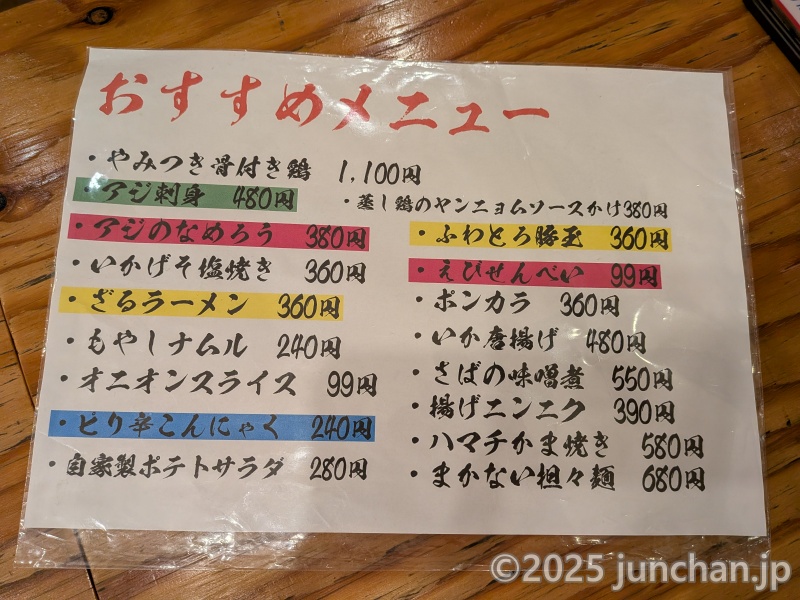 おすすめメニュー
・やみつき骨付き鶏 1,100円
・アジ刺身 480円
・アジのなめろう 380円
・いかげそ塩焼き 360円
・ざるラーメン 360円
・もやしナムル 240円
・オニオンスライス 99円
・ピリ辛こんにゃく 240円
・自家製ポテトサラダ 280円
・蒸し鶏のヤンニョムソースかけ380円
・ふわとろ豚玉 360円
・えびせんべい 99円
・ポンカラ 360円
・いか唐揚げ 480円
・さばの味噌煮 550円
・揚げニンニク 390円
・ハマチかま焼き 580円
・まかない担々麺 680円
©2025 junchan.jp